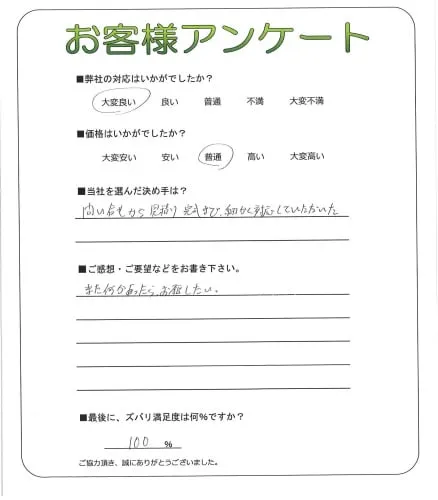 お客様アンケート
■弊社の対応はいかがでしたか?
大変良い 良い 普通 不満 大変不満
■価格はいかがでしたか?
大変安い 安い 普通 高い 大変高い
■当社を選んだ決め手は?
問い合せから見積り 完成まで、細かく対応していただいた
■ご感想・ご要望などをお書き下さい。
また何かあったら、お願したい。
■最後に、ズバリ満足度は何%ですか?
100 %
ご協力頂き、誠にありがとうございました。